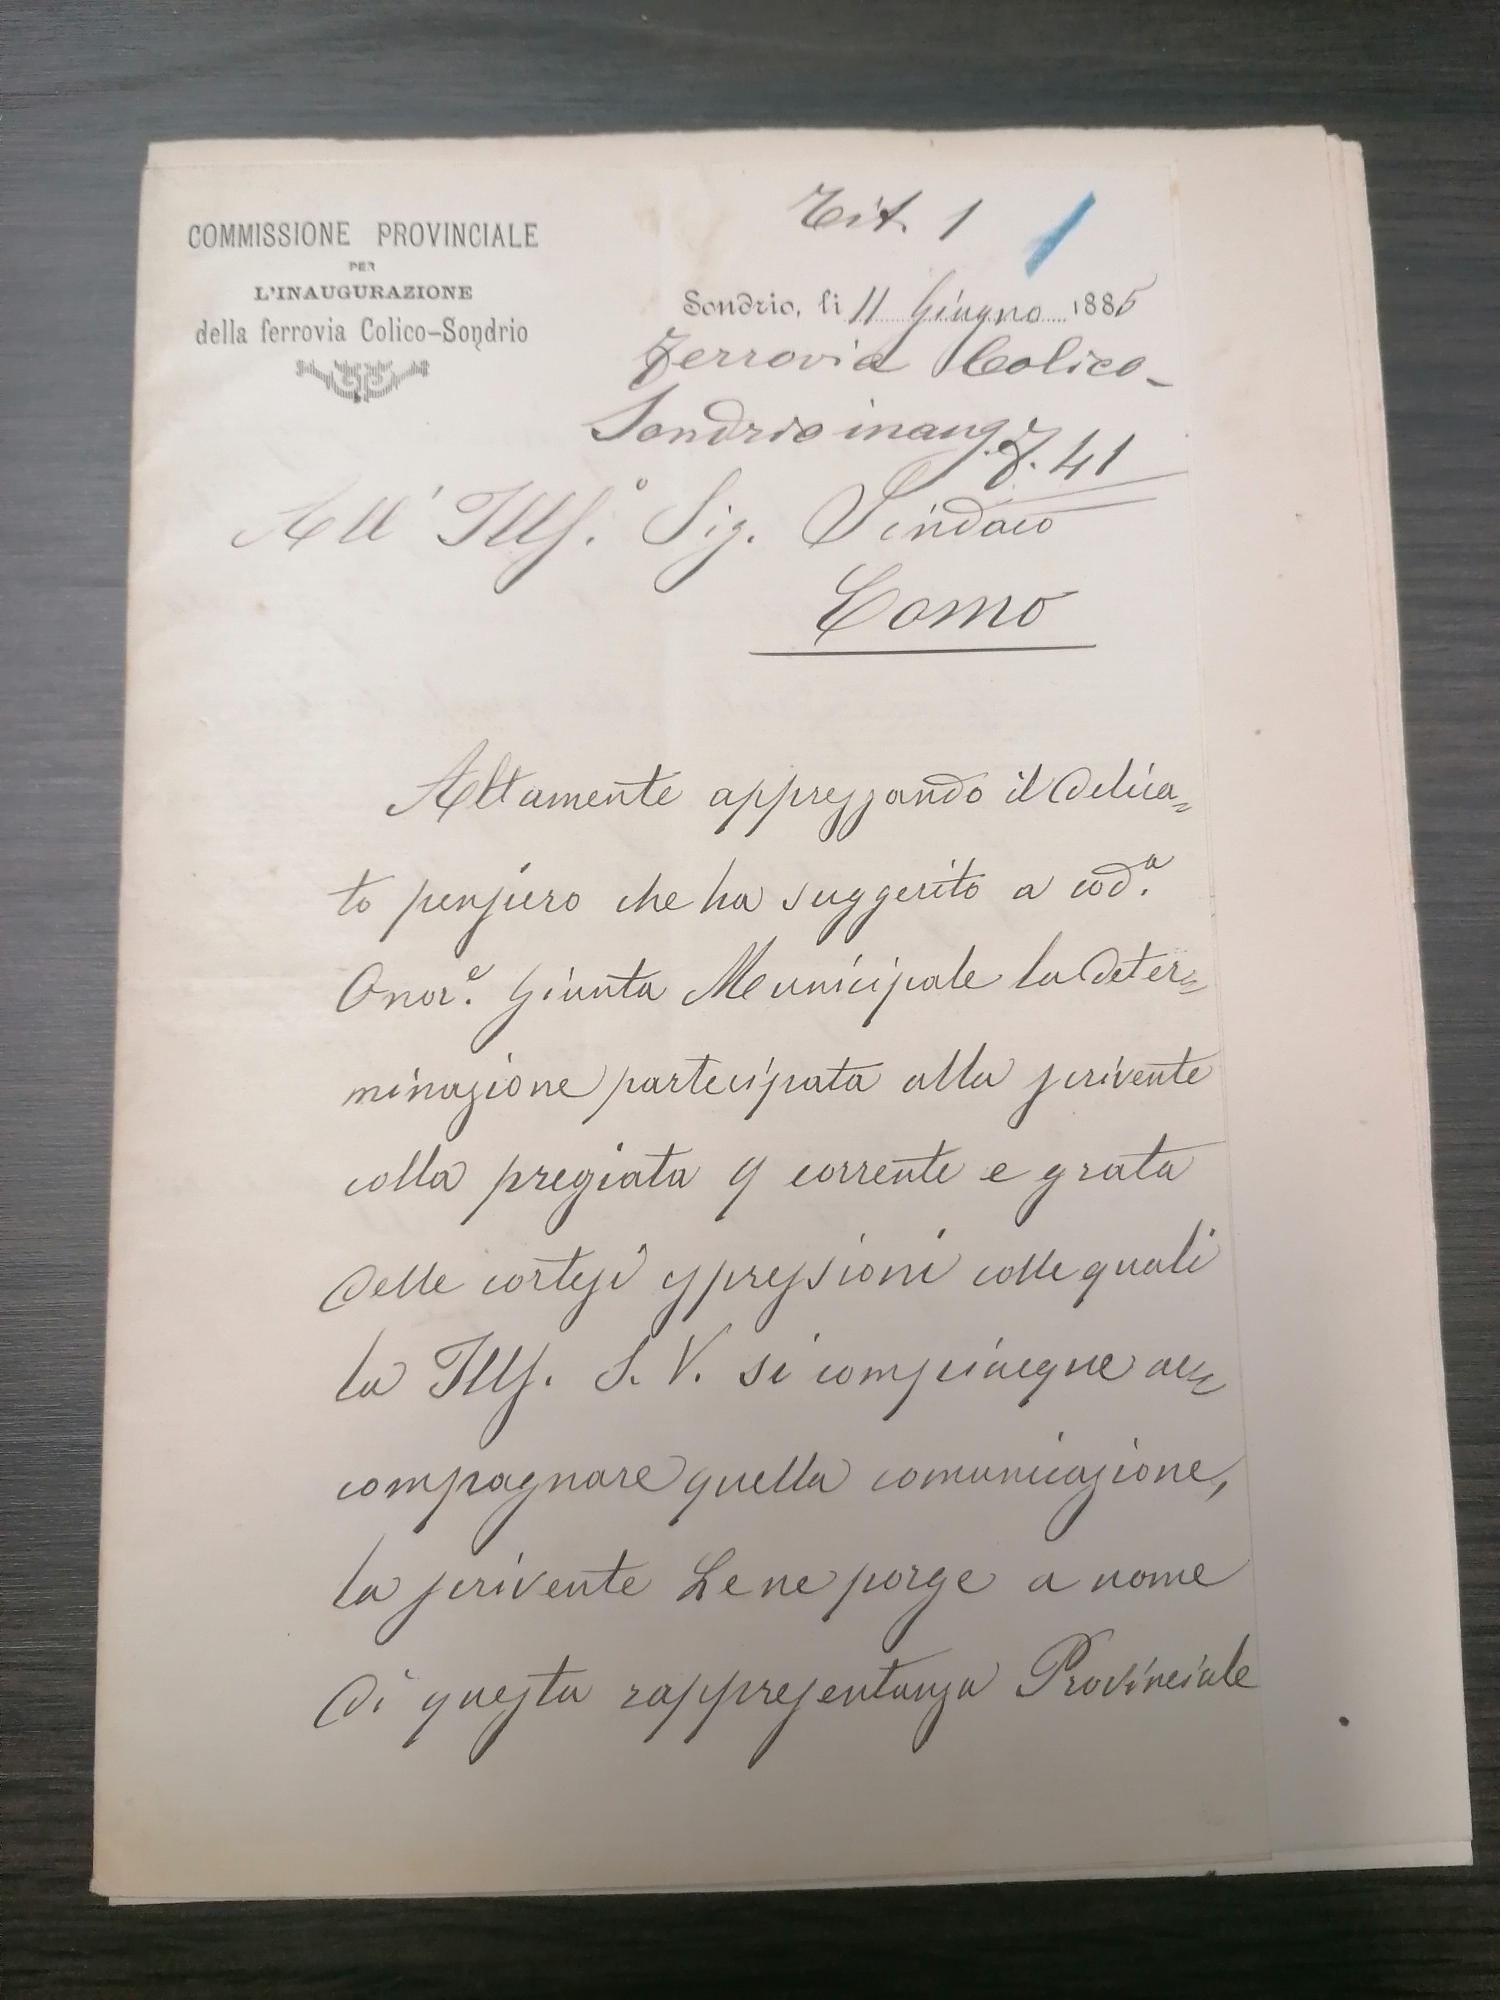 COMMISSIONE PROVINCIALE
PER
L'INAUGURAZIONE
della ferrovia Colico-Sondrio
Tit. 1
Sondrio, li 11 Giugno 1885
Ferrovia Colico-
Sondrio inaug. F. 41
All' Ills.º Sig. Sindaco
Como
Altamente apprezzando il delica=
to pensiero che ha suggerito a cod.ª
Onor.e Giunta Municipale la deter=
minazione partecipata alla scrivente
colla pregiata 9 corrente e grata
delle cortesi espressioni colle quali
la Ills. S. V. si compiacque ac=
compagnare quella comunicazione,
la scrivente Le ne porge a nome
di questa rappresentanza Provinciale